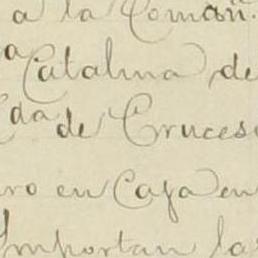 a la Comañ.
a Catalina de
Cda de Cruces
ro en Caja en
Importan las